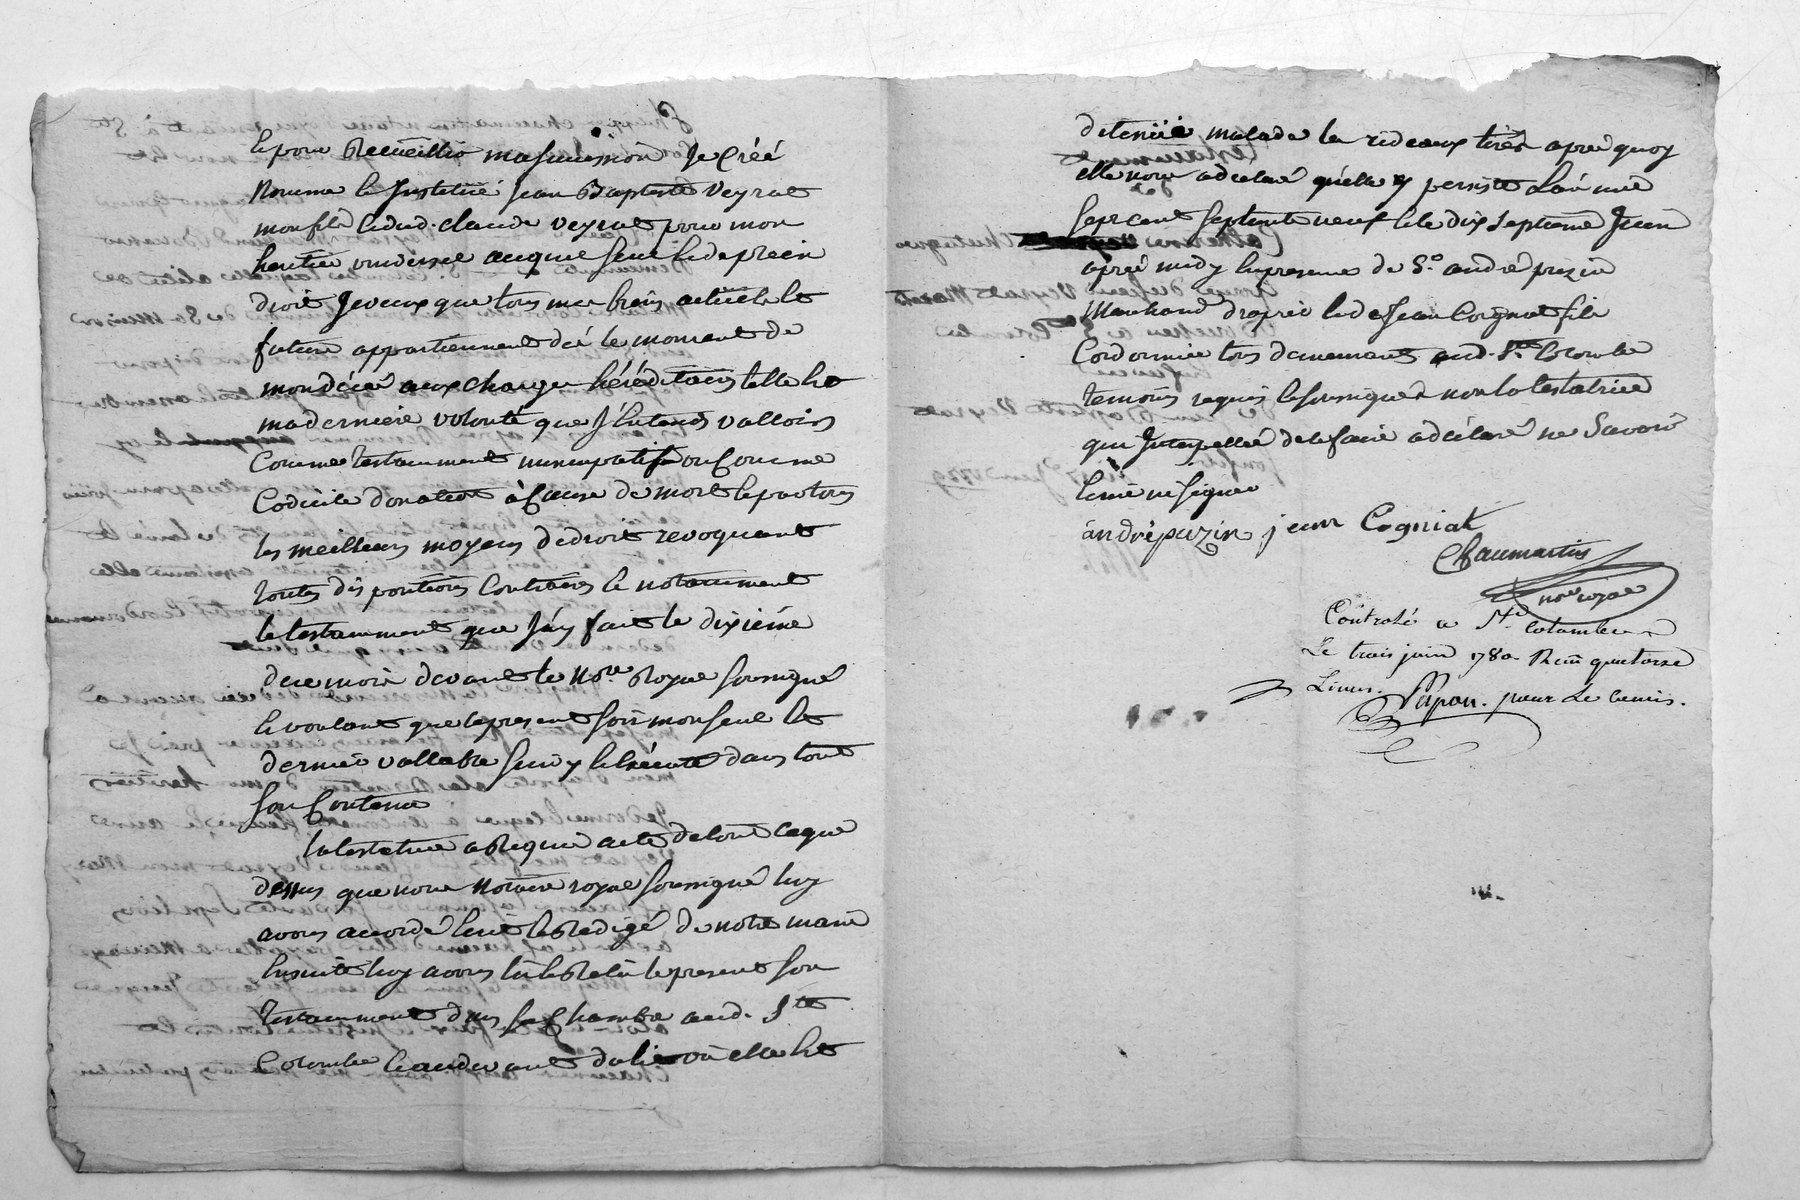 Et pour Recueillir ma succession Je Créé
Nomme et Institué Jean Baptiste Veyrat
mon fils et dud. claude veyrat pour mon
heritier universel auquel seul et de plein
droit Je veux que tous mes biens actuels et
futurs appartiennent dès le moment de
mon décès aux charges héréditaires telle est
ma derniere volonté que J'Entends valloir
Comme testamment nuncupatif ou Comme
Codicile donation à Cause de mort et par tous
les meilleurs moyens de droit revoquant
toutes dispositions Contraires et notamment
le testamment que J'ay fait le dixieme
de ce mois devant le No.re Royal soussigné
Et voulant que le present soit mon seul et
dernier vallable suivy et Exécuté dans tout
son Contenu
La testatrice a Requis acte de tout ce que
dessus que nous Notaire royal soussigné luy
avons accordé Ecrit et Redigé de notre main
Ensuite luy avons lû et Relû le present son
testamment dans sa Chambre aud. Ste
Colombe Et au devant du lit où elle Est
detenüe malade les rideaux tirés après quoy
elle nous a declaré qu'elle y persiste L'an mil
sept cent septante neuf et le dix septieme Juin
après midy En presence de Sr andré puzin
Marchand drapier et de Jean Cogniat fils
Cordonnier tous demeurants aud. Ste Colombe
temoins requis et soussignés non la testatrice
qui Interpellée de le faire a déclaré ne Savoir
Ecrire ni signer
andré puzin jean Cogniat
Chaumartin
nore royal
Controlé a Ste Colombe
Le trois juin 1780 Reçu quatorze
Livres. Papon. pour Le Comis.